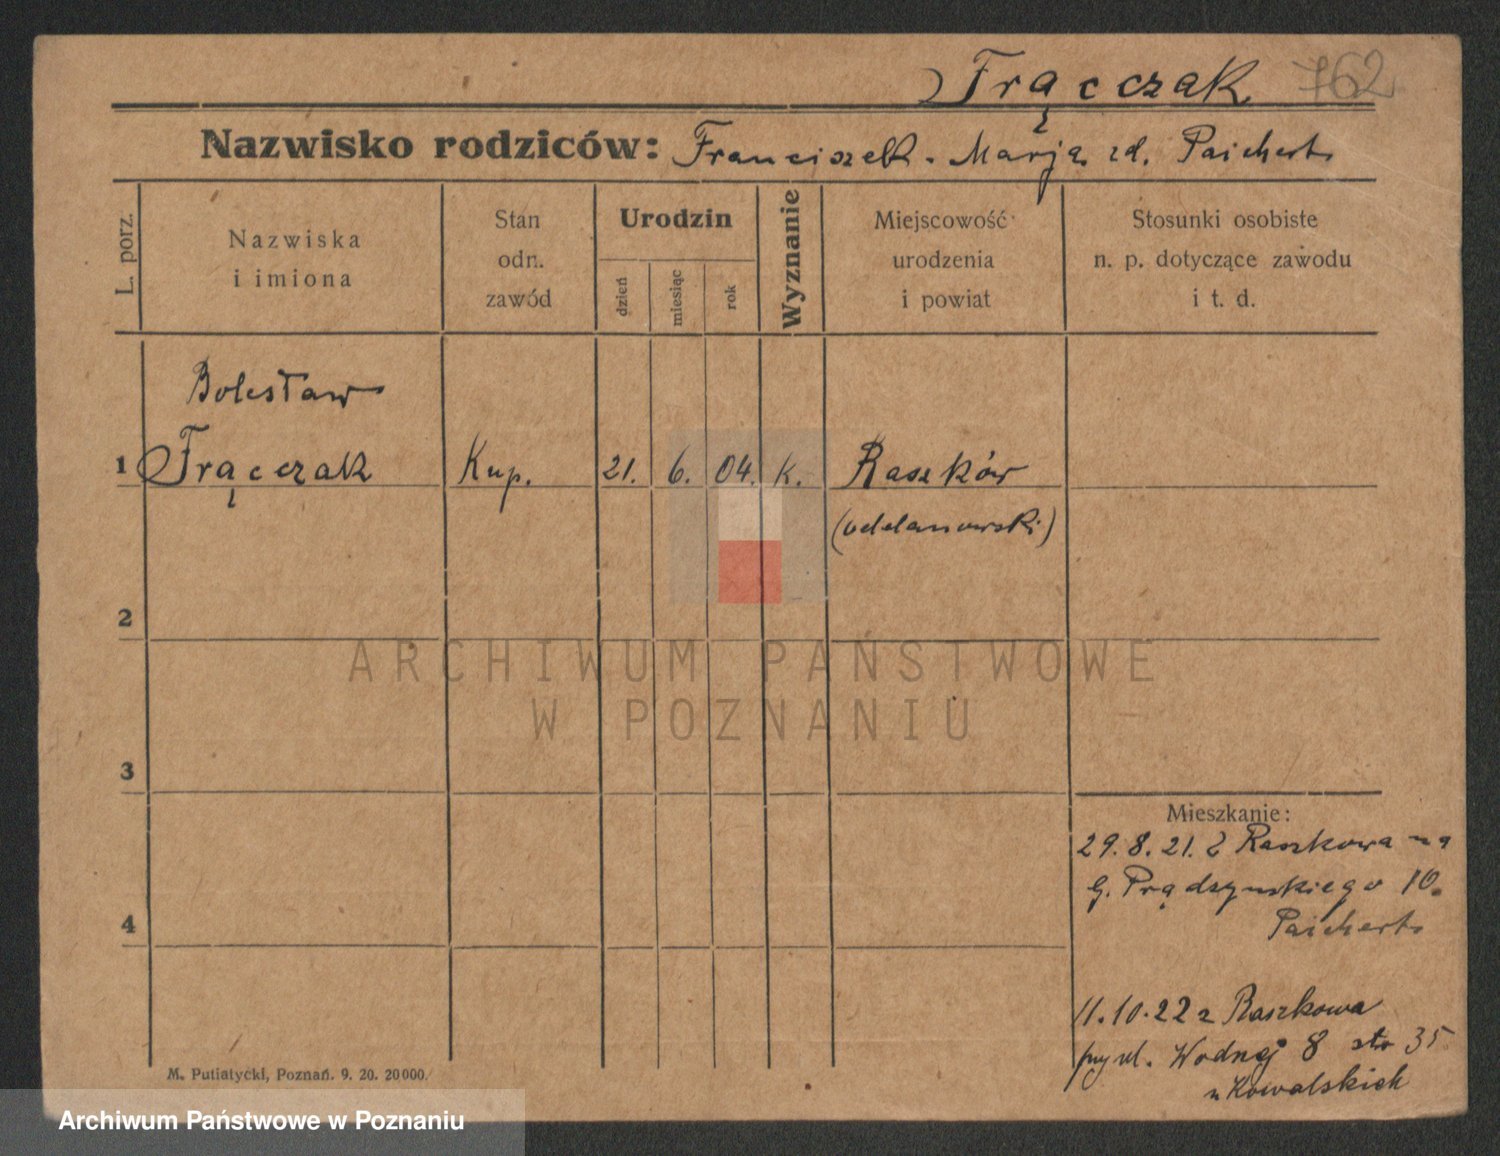 Frącczak 762
Nazwisko rodziców: Franciszek. Marja zd. Paichert
L. porz.
Nazwiska
i imiona
Stan
odn.
zawód
Urodzin
dzień
miesiąc
rok
Wyznanie
Miejscowość
urodzenia
i powiat
Stosunki osobiste
n. p. dotyczące zawodu
i t. d.
Bolesław
1 Frączczak Kup. 21. 6. 04. K. Raszków
(odolanowski)
2
ARCHIWUM PAŃSTWOWE
W POZNANIU
3
Mieszkanie:
29. 8. 21. z Raszkowa na
G. Prądzyńskiego 10.
4
Paichert
11. 10. 22 z Raszkowa
przy ul. Wodnej 8 35
u Kowalskich
M. Putiatycki, Poznań. 9. 20. 20000.
Archiwum Państwowe w Poznaniu